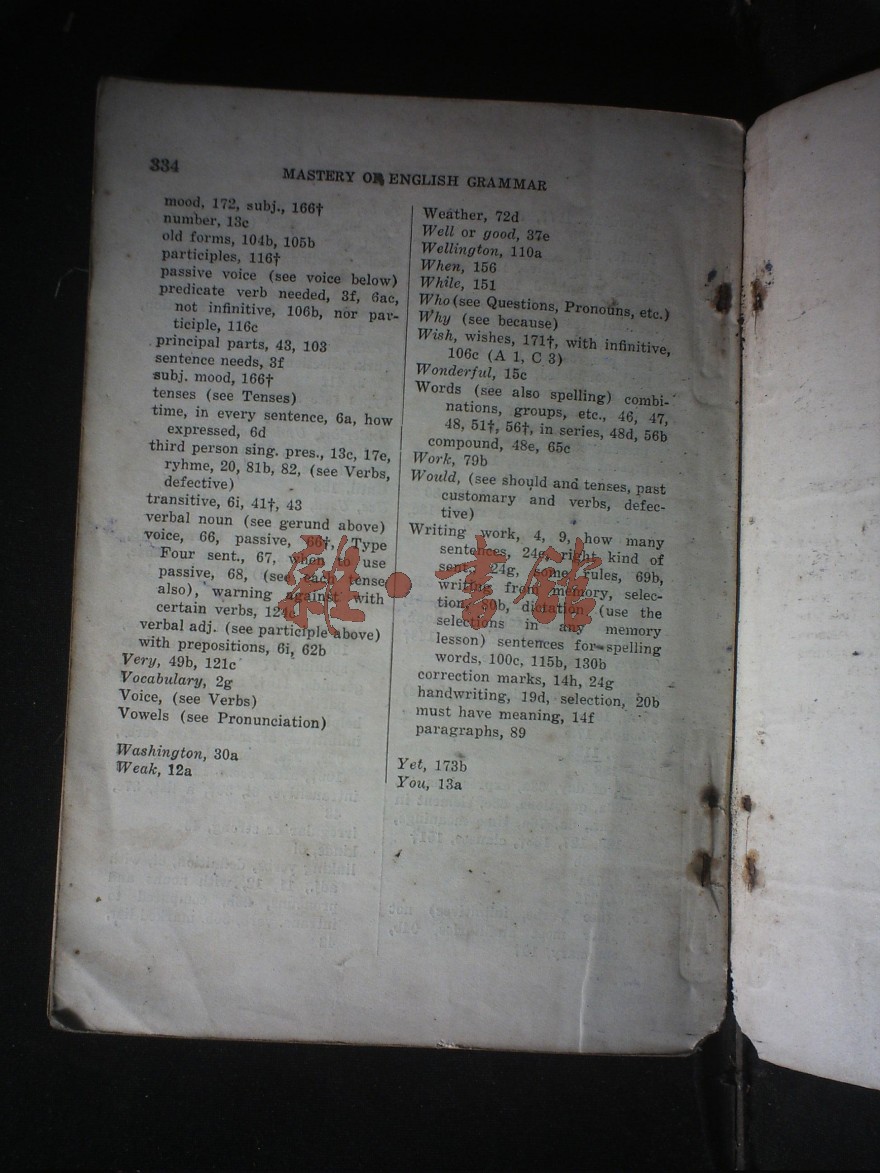 334
MASTERY OF ENGLISH GRAMMAR
mood, 172, subj., 166†
number, 13c
old forms, 104b, 105b
participles, 116†
passive voice (see voice below)
predicate verb needed, 3f, 6ac,
not infinitive, 106b, nor par-
ticiple, 116c
principal parts, 43, 103
sentence needs, 3f
subj. mood, 166†
tenses (see Tenses)
time, in every sentence, 6a, how
expressed, 6d
third person sing. pres., 13c, 17e,
ryhme, 20, 81b, 82, (see Verbs,
defective)
transitive, 6i, 41†, 43
verbal noun (see gerund above)
voice, 66, passive, 66†, Type
Four sent., 67, when to use
passive, 68, (see each tense
also), warning against with
certain verbs,
verbal adj. (see participle above)
with prepositions, 6i, 62b
Very, 49b, 121c
Vocabulary, 2g
Voice, (see Verbs)
Vowels (see Pronunciation)
Washington, 30a
Weak, 12a
Weather, 72d
Well or good, 37e
Wellington, 110a
When, 156
While, 151
Who (see Questions, Pronouns, etc.)
Why (see because)
Wish, wishes, 171†, with infinitive,
106c (A 1, C 3)
Wonderful, 15c
Words (see also spelling) combi-
nations, groups, etc., 46, 47,
48, 51†, 56†, in series, 48d, 56b
compound, 48e, 65c
Work, 79b
Would, (see should and tenses, past
customary and verbs, defec-
tive)
Writing work, 4, 9, how many
sentences, 24g, right kind of
sent., 24g, some rules, 69b,
writing from memory, selec-
tion, 80b, dictation, (use the
selections in any memory
lesson) sentences for spelling
words, 100c, 115b, 130b
correction marks, 14h, 24g
handwriting, 19d, selection, 20b
must have meaning, 14f
paragraphs, 89
Yet, 173b
You, 13a